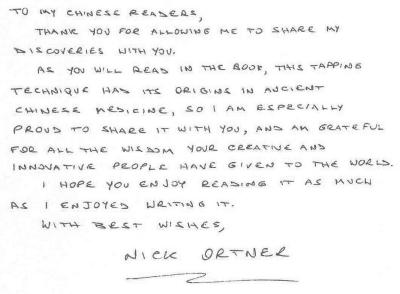 TO MY CHINESE READERS,
THANK YOU FOR ALLOWING ME TO SHARE MY
DISCOVERIES WITH YOU.
AS YOU WILL READ IN THE BOOK, THIS TAPPING
TECHNIQUE HAS ITS ORIGINS IN ANCIENT
CHINESE MEDICINE, SO I AM ESPECIALLY
PROUD TO SHARE IT WITH YOU, AND AM GRATEFUL
FOR ALL THE WISDOM YOUR CREATIVE AND
INNOVATIVE PEOPLE HAVE GIVEN TO THE WORLD.
I HOPE YOU ENJOY READING IT AS MUCH
AS I ENJOYED WRITING IT.
WITH BEST WISHES,
NICK ORTNER